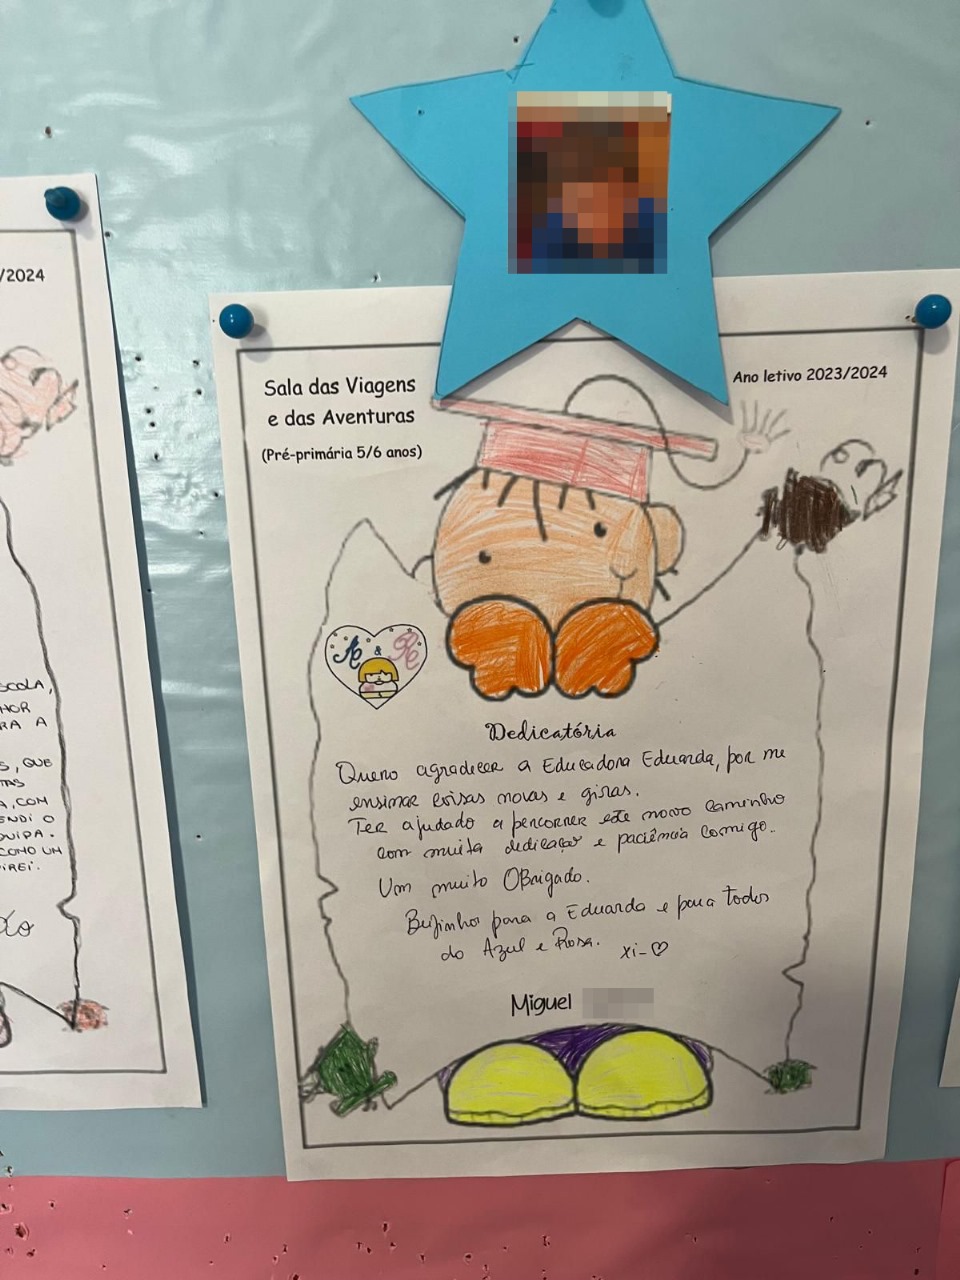 /2024
SCOLA,
HOR
RA A
S, QUE
TAS
A, COM
ENDI O
QUIPA.
COMO UM
IREI.
Sala das Viagens
e das Aventuras
(Pré-primária 5/6 anos)
Ano letivo 2023/2024
Az & Ro
Dedicatória
Quero agradecer a Educadora Eduarda, por me
ensinar coisas novas e giras.
Ter ajudado a percorrer este novo caminho
com muita dedicação e paciência comigo.
Um muito OBrigado.
Beijinho para a Eduarda e para todos
do Azul e Rosa. xi-♡
Miguel